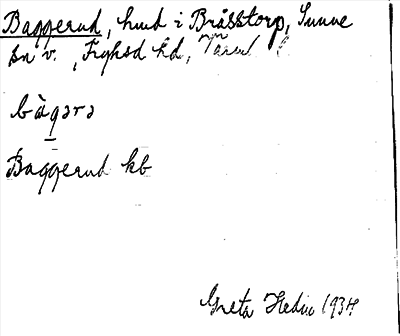 Baggerud, hmd i Bråsstorp, Sunne
sn v., Fryksd hd, Värml
bàgərə
Baggerud kb
Greta Hedin 1934